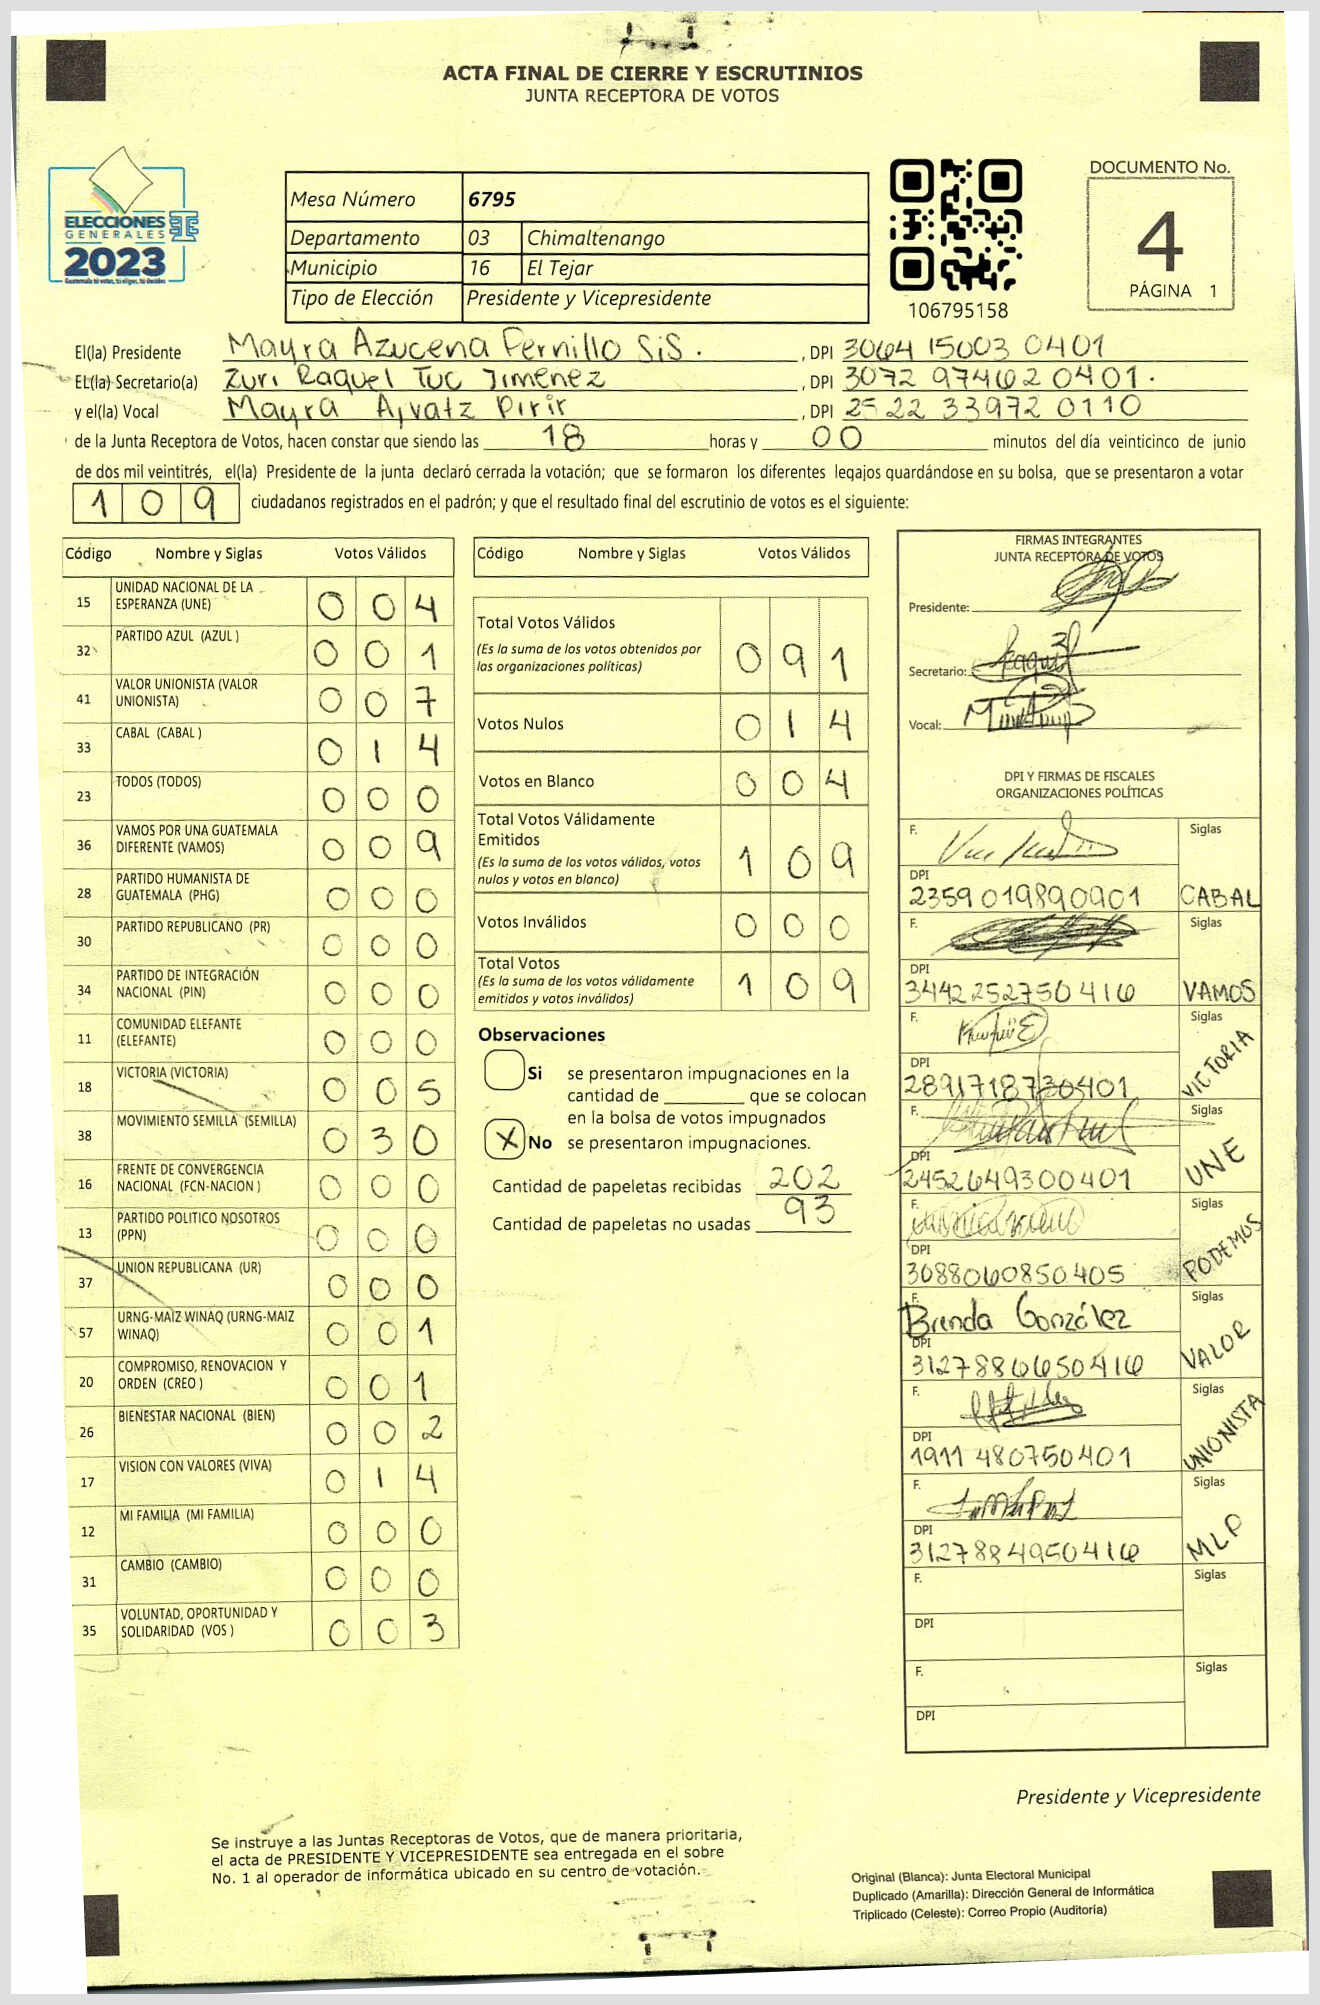 ACTA FINAL DE CIERRE Y ESCRUTINIOS
JUNTA RECEPTORA DE VOTOS
ELECCIONES
GENERALES
2023
Guatemala tú votas, tú eliges, tú decides
Mesa Número 6795
Departamento 03 Chimaltenango
Municipio 16 El Tejar
Tipo de Elección Presidente y Vicepresidente
106795158
DOCUMENTO No.
4
PÁGINA 1
El(la) Presidente Mayra Azucena Pernillo Sis. , DPI 3064 15003 0401
EL(la) Secretario(a) Zuri Raquel Tuc Jimenez , DPI 3072 97462 0401.
y el(la) Vocal Mayra Ajvatz Pirir , DPI 2522 33972 0110
de la Junta Receptora de Votos, hacen constar que siendo las 18 horas y 00 minutos del día veinticinco de junio
de dos mil veintitrés, el(la) Presidente de la junta declaró cerrada la votación; que se formaron los diferentes legajos quardándose en su bolsa, que se presentaron a votar
109 ciudadanos registrados en el padrón; y que el resultado final del escrutinio de votos es el siguiente:
Código Nombre y Siglas Votos Válidos
15 UNIDAD NACIONAL DE LA ESPERANZA (UNE) 0 0 4
32 PARTIDO AZUL (AZUL ) 0 0 1
41 VALOR UNIONISTA (VALOR UNIONISTA) 0 0 7
33 CABAL (CABAL ) 0 1 4
23 TODOS (TODOS) 0 0 0
36 VAMOS POR UNA GUATEMALA DIFERENTE (VAMOS) 0 0 9
28 PARTIDO HUMANISTA DE GUATEMALA (PHG) 0 0 0
30 PARTIDO REPUBLICANO (PR) 0 0 0
34 PARTIDO DE INTEGRACIÓN NACIONAL (PIN) 0 0 0
11 COMUNIDAD ELEFANTE (ELEFANTE) 0 0 0
18 VICTORIA (VICTORIA) 0 0 5
38 MOVIMIENTO SEMILLA (SEMILLA) 0 3 0
16 FRENTE DE CONVERGENCIA NACIONAL (FCN-NACION ) 0 0 0
13 PARTIDO POLITICO NOSOTROS (PPN) 0 0 0
37 UNION REPUBLICANA (UR) 0 0 0
57 URNG-MAIZ WINAQ (URNG-MAIZ WINAQ) 0 0 1
20 COMPROMISO, RENOVACION Y ORDEN (CREO ) 0 0 1
26 BIENESTAR NACIONAL (BIEN) 0 0 2
17 VISION CON VALORES (VIVA) 0 1 4
12 MI FAMILIA (MI FAMILIA) 0 0 0
31 CAMBIO (CAMBIO) 0 0 0
35 VOLUNTAD, OPORTUNIDAD Y SOLIDARIDAD (VOS ) 0 0 3
Código Nombre y Siglas Votos Válidos
Total Votos Válidos
(Es la suma de los votos obtenidos por
las organizaciones políticas) 0 9 1
Votos Nulos 0 1 4
Votos en Blanco 0 0 4
Total Votos Válidamente
Emitidos
(Es la suma de los votos válidos, votos
nulos y votos en blanco) 1 0 9
Votos Inválidos 0 0 0
Total Votos
(Es la suma de los votos válidamente
emitidos y votos inválidos) 1 0 9
Observaciones
Si se presentaron impugnaciones en la
cantidad de ________ que se colocan
en la bolsa de votos impugnados
X No se presentaron impugnaciones.
Cantidad de papeletas recibidas 202
Cantidad de papeletas no usadas 93
FIRMAS INTEGRANTES
JUNTA RECEPTORA DE VOTOS
Presidente:
Secretario:
Vocal:
DPI Y FIRMAS DE FISCALES
ORGANIZACIONES POLÍTICAS
F. Siglas
DPI
2359019890901 CABAL
F. Siglas
DPI
3442252750416 VAMOS
F. Siglas
DPI
2891718730401 VICTORIA
F. Siglas
DPI
2452649300401 UNE
F. Siglas
DPI
3088060850405 PODEMOS
F. Brenda González Siglas
DPI
3127886650416 VALOR
F. Siglas
DPI
1911 480750401 UNIONISTA
F. Siglas
DPI
3127884950416 MLP
F. Siglas
DPI
F. Siglas
DPI
Presidente y Vicepresidente
Se instruye a las Juntas Receptoras de Votos, que de manera prioritaria,
el acta de PRESIDENTE Y VICEPRESIDENTE sea entregada en el sobre
No. 1 al operador de informática ubicado en su centro de votación.
Original (Blanca): Junta Electoral Municipal
Duplicado (Amarilla): Dirección General de Informática
Triplicado (Celeste): Correo Propio (Auditoría)